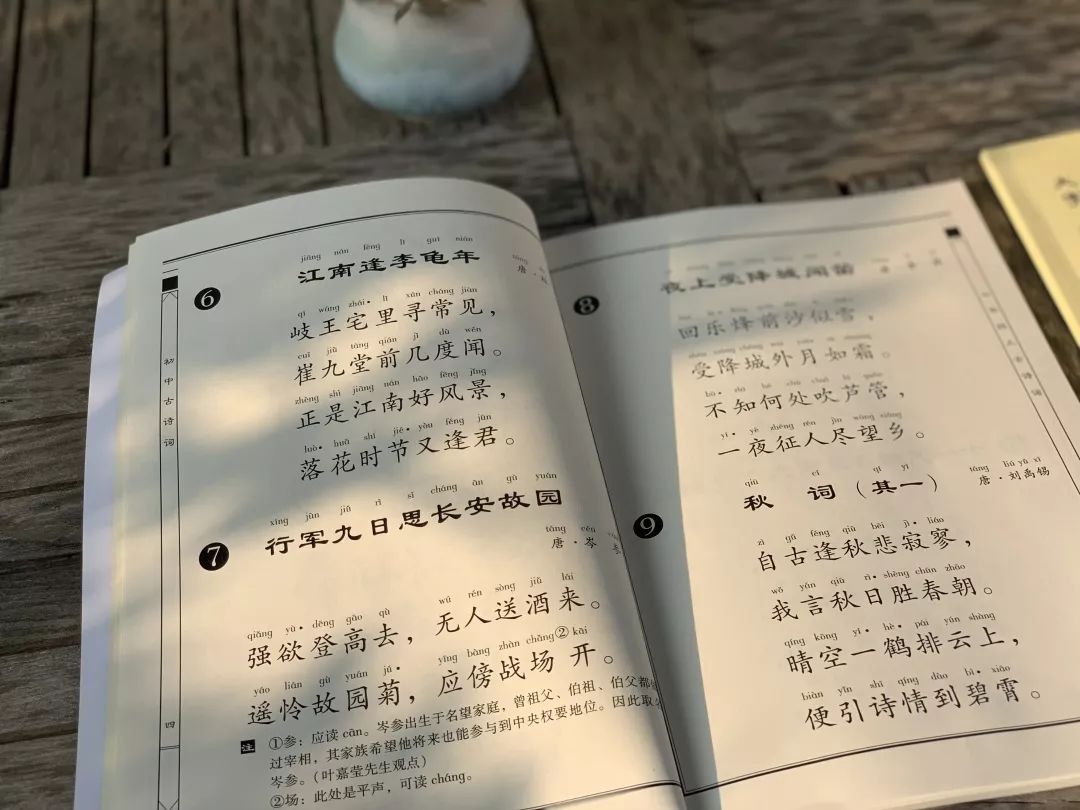 初中古诗词
四
6
jiāng nán féng lǐ guī nián
江南逢李龟年
唐·
qí wáng zhái• lǐ xún cháng jiàn
岐王宅里寻常见，
cuī jiǔ táng qián jǐ dù wén
崔九堂前几度闻。
zhèng shì jiāng nán hǎo fēng jǐng
正是江南好风景，
luò• huā shí jié• yòu féng jūn
落花时节又逢君。
7
xíng jūn jiǔ rì sī cháng ān gù yuán
行军九日思长安故园
táng cén
唐·岑
qiǎng yù• dēng gāo qù wú rén sòng jiǔ lái
强欲登高去，无人送酒来。
yáo lián gù yuán jú• yīng bàng zhàn chǎng② kāi
遥怜故园菊，应傍战场开。
注
①参：应读 cān。岑参出生于名望家庭，曾祖父、伯祖、伯父都
过宰相，其家族希望他将来也能参与到中央权要地位。因此取
岑参。（叶嘉莹先生观点）
②场：此处是平声，可读 cháng。
8
夜上受降城闻笛
回乐烽前沙似雪，
受降城外月如霜。
不知何处吹芦管，
yī• yè zhēng rén jìn wàng xiāng
一夜征人尽望乡。
9
qiū cí qí yī
秋 词（其一）
táng liú yǔ xī
唐·刘禹锡
zì gǔ féng qiū bēi jì• liáo
自古逢秋悲寂寥，
wǒ yán qiū rì• shèng chūn zhāo
我言秋日胜春朝。
qíng kōng yī• hè• pái yún shàng
晴空一鹤排云上，
biàn yǐn shī qíng dào bì• xiāo
便引诗情到碧霄。